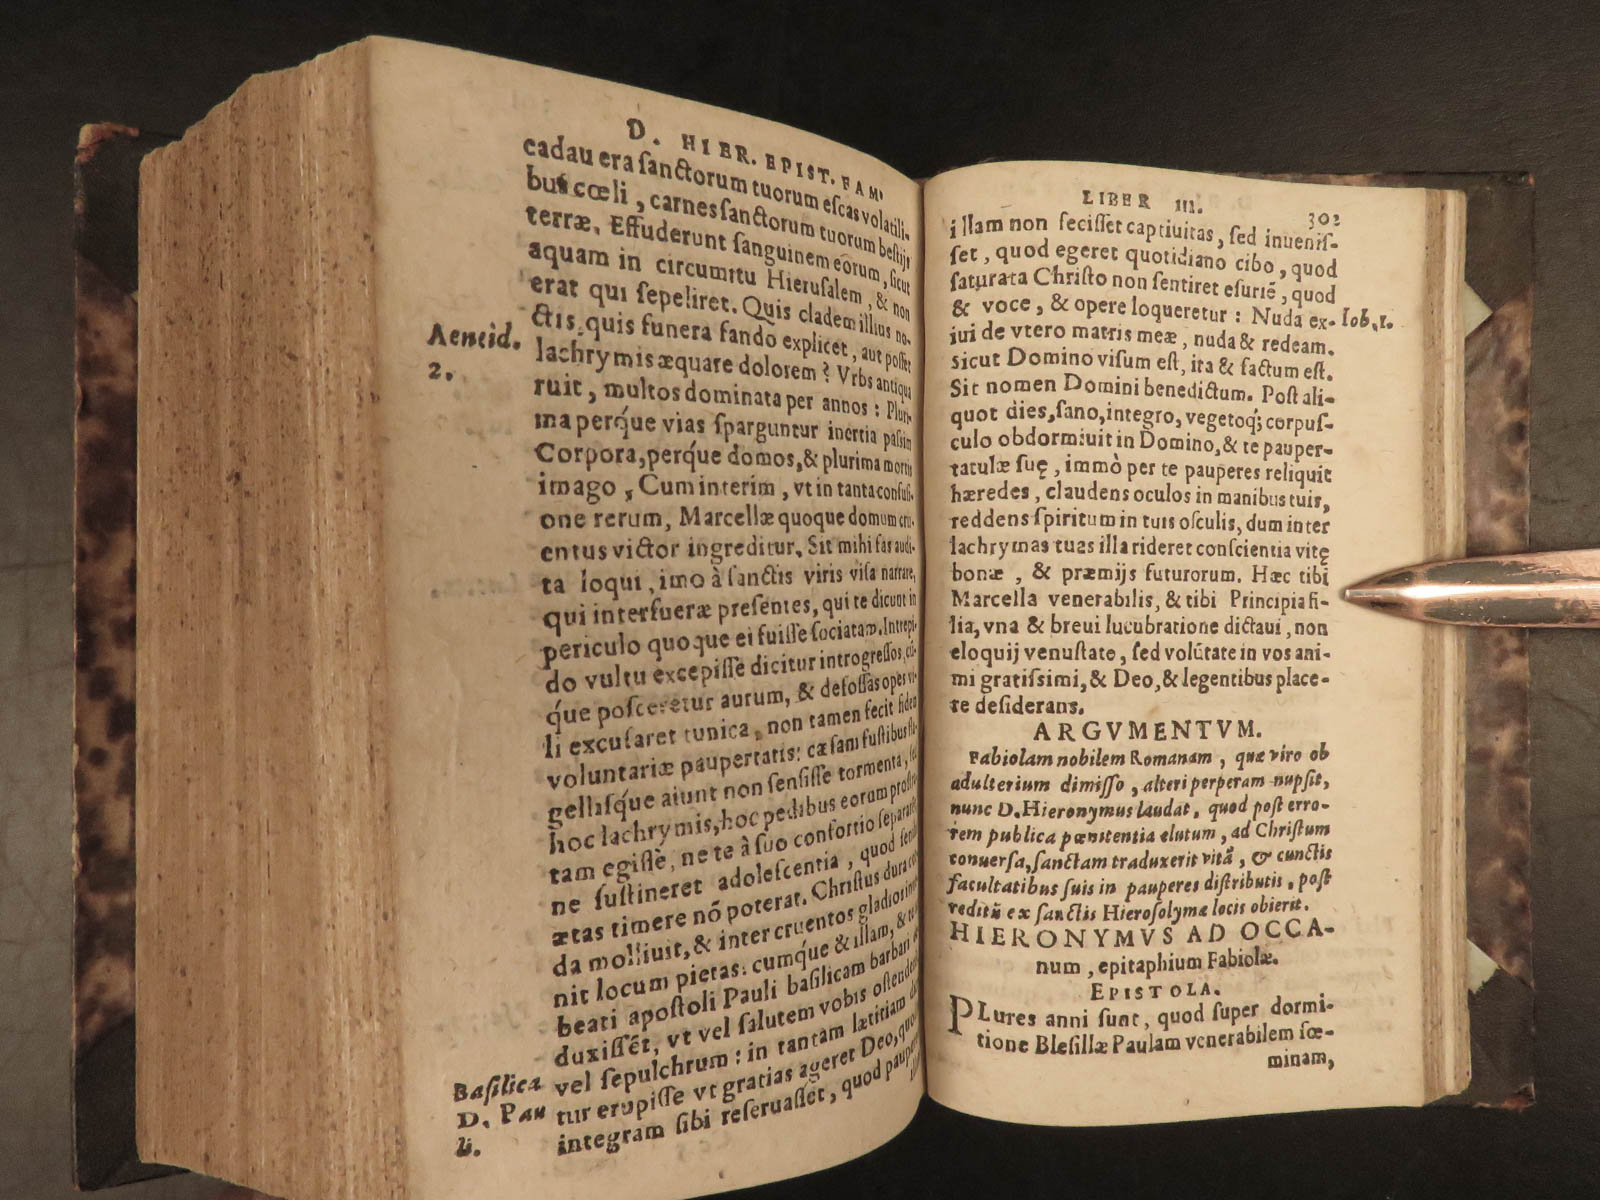 D. HIER. EPIST. FAM.
cadauera sanctorum tuorum escas volatili-
bus cœli, carnes sanctorum tuorum bestijs
terræ. Effuderunt sanguinem eorum, sicut
aquam in circumitu Hierusalem, & non
erat qui sepeliret. Quis cladem illius no-
ctis, quis funera fando explicet, aut posset
Aeneid.
2.
lachrymis æquare dolorem? Vrbs antiqua
ruit, multos dominata per annos: Pluri-
ma perq́ue vias sparguntur inertia passim
Corpora, perq́ue domos, & plurima mortis
imago, Cum interim, vt in tanta confusi-
one rerum, Marcellæ quoque domum cru-
entus victor ingreditur. Sit mihi fas audi-
ta loqui, imo à sanctis viris visa narrare,
qui interfueræ presentes, qui te dicunt in
periculo quoque ei fuisse sociatam. Intrepi-
do vultu excepisse dicitur introgressos, cú-
q́ue posceretur aurum, & defossas opes vi-
li excusaret tunica, non tamen fecit fidem
voluntariæ paupertatis: cæsam fustibus fla-
gellisq́ue aiunt non sensisse tormenta, sed
hoc lachrymis, hoc pedibus eorum prostra-
tam egissè, ne te à suo consortio separaret,
ne sustineret adolescentia, quod senilis
ætas timere nō poterat. Christus dura cor-
da molliuit, & inter cruentos gladios inue-
nit locum pietas: cumq́ue & illam, & te
beati apostoli Pauli basilicam barbari
duxissét, vt vel salutem vobis ostenderet
Basilica
D. Pau
li.
vel sepulchrum: in tantam lætitiam
tur erupisse vt gratias ageret Deo, quod
integram sibi reseruassét, quod pauperem
LIBER III.
302
illam non fecisset captiuitas, sed inuenis-
set, quod egeret quotidiano cibo, quod
saturata Christo non sentiret esuriē, quod
& voce, & opere loqueretur: Nuda ex-
Iob. 1.
iui de vtero matris meæ, nuda & redeam.
sicut Domino visum est, ita & factum est.
Sit nomen Domini benedictum. Post ali-
quot dies, sano, integro, vegetoq́; corpus-
culo obdormiuit in Domino, & te pauper-
tatulæ suę, immò per te pauperes reliquit
hæredes, claudens oculos in manibus tuis,
reddens spiritum in tuis osculis, dum inter
lachrymas tuas illa rideret conscientia vitę
bonæ, & præmijs futurorum. Hæc tibi
Marcella venerabilis, & tibi Principia fi-
lia, vna & breui lucubratione dictaui, non
eloquij venustate, sed volūtate in vos ani-
mi gratissimi, & Deo, & legentibus place-
re desiderans.
ARGVMENTVM.
Fabiolam nobilem Romanam, quæ viro ob
adulterium dimisso, alteri perperam nupsit,
nunc D. Hieronymus laudat, quod post erro-
rem publica pœnitentia elutum, ad Christum
conuersa, sanctam traduxerit vitā, & cunctis
facultatibus suis in pauperes distributis, post
reditū ex sanctis Hierosolymæ locis obierit.
HIERONYMVS AD OCCA-
num, epitaphium Fabiolæ.
EPISTOLA.
PLures anni sunt, quod super dormi-
tione Blesillæ Paulam venerabilem fœ-
minam,